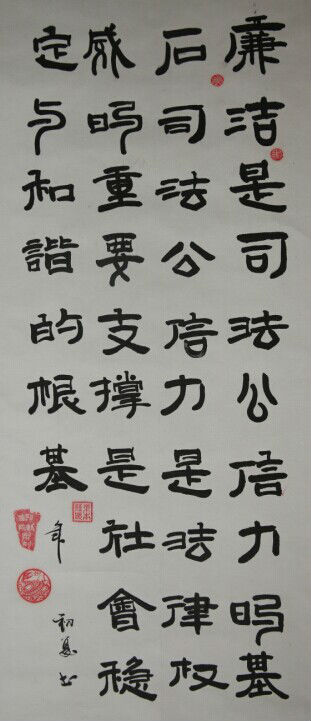 廉洁是司法公信力的基
石司法公信力是法律权
威的重要支撑是社會稳
定与和諧的根基
年
初夏书